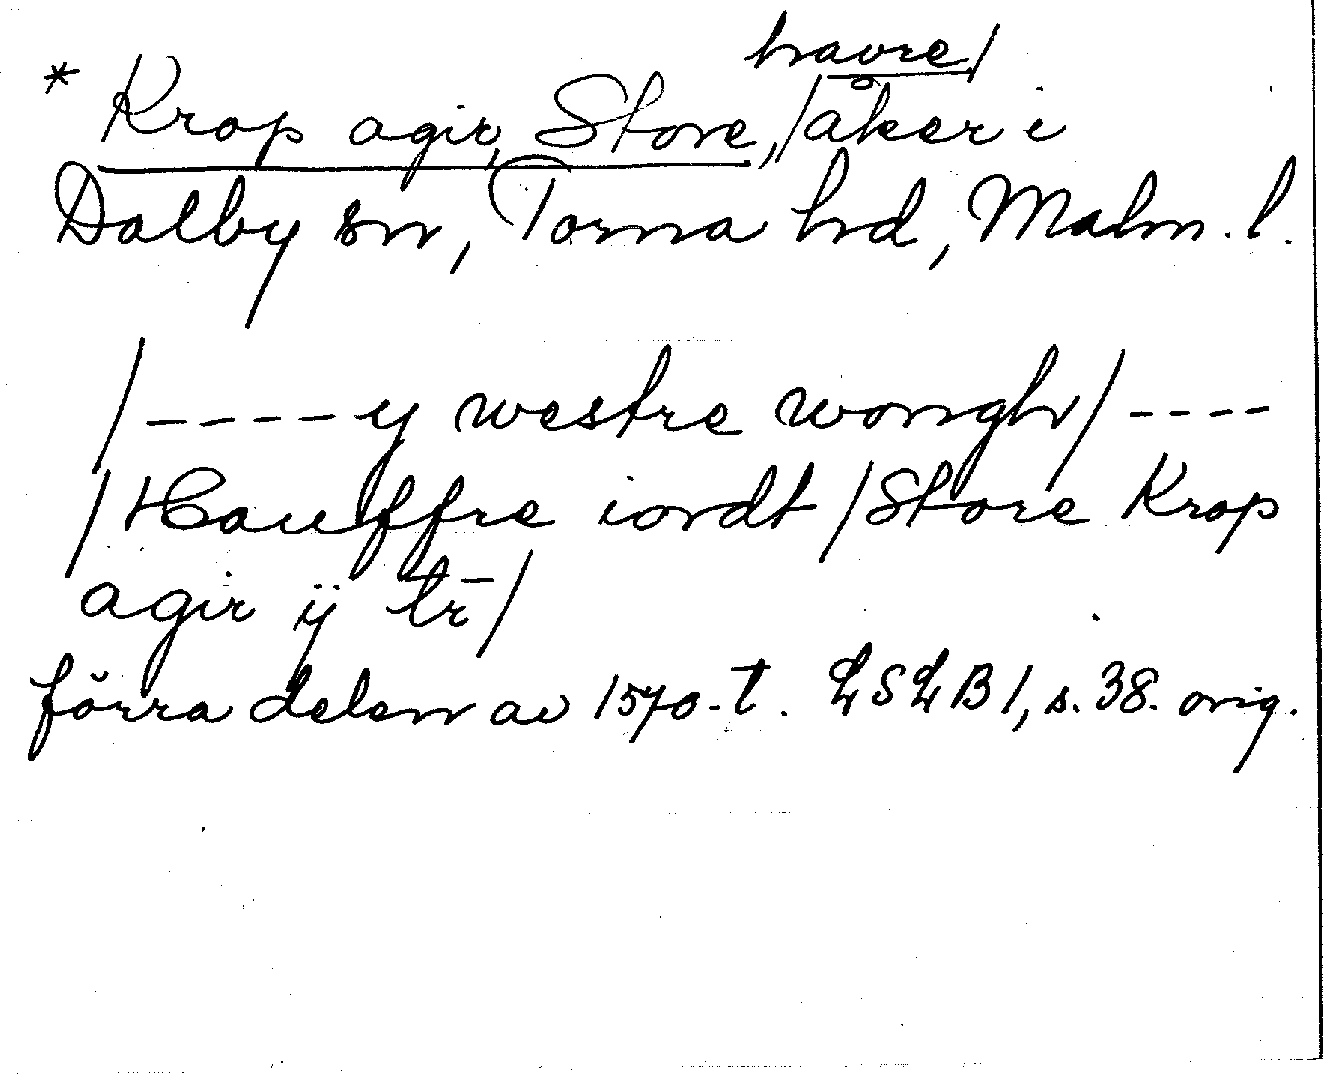 havre/
* Krop agir, Store, /åker i
Dalby sn, Torna hd, Malm. l.
/----y westre wongh/----
/Hauffre iordt /Store Krop
agir ij tr̄/
förra delen av 1570-t. LSLB 1, s. 38. orig.